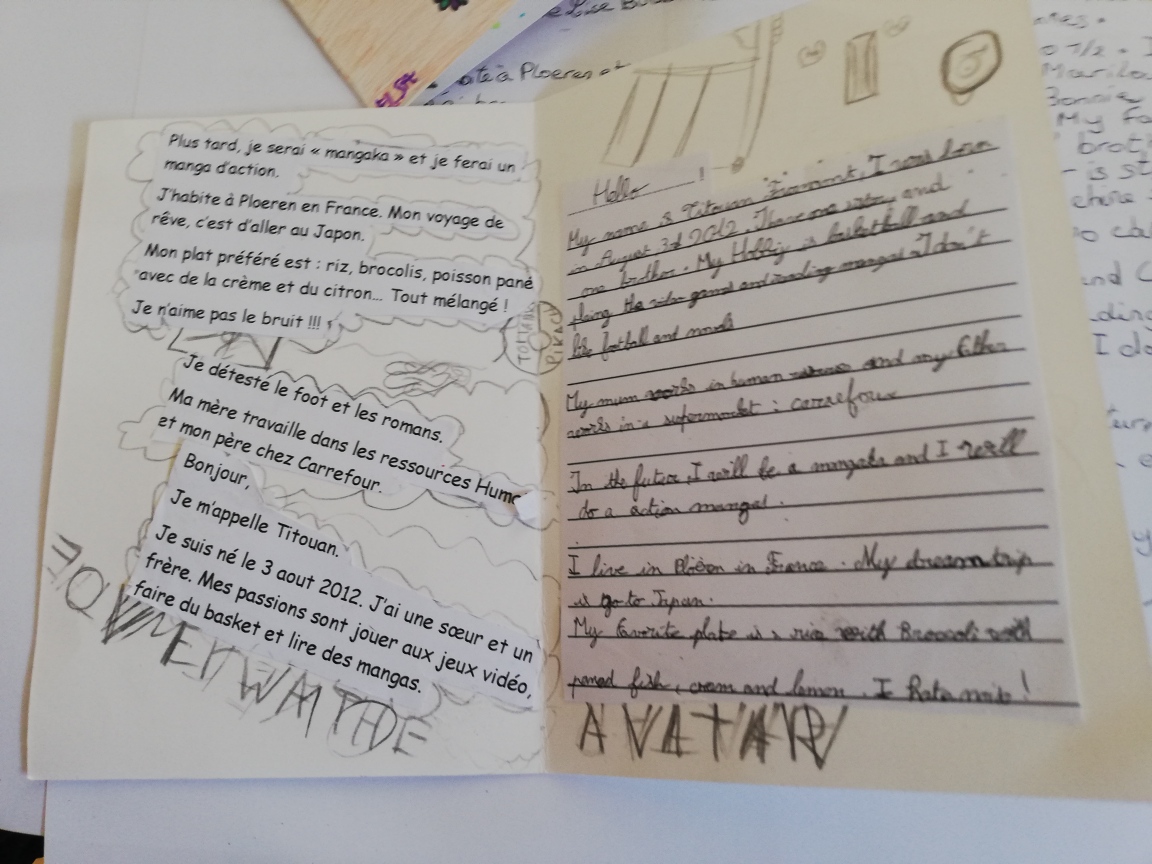 Plus tard, je serai « mangaka » et je ferai un
manga d'action.
J'habite à Ploeren en France. Mon voyage de
rêve, c'est d'aller au Japon.
Mon plat préféré est : riz, brocolis, poisson pané
avec de la crème et du citron... Tout mélangé !
Je n'aime pas le bruit !!!
Je déteste le foot et les romans.
Ma mère travaille dans les ressources Huma
et mon père chez Carrefour.
Bonjour,
Je m'appelle Titouan.
Je suis né le 3 aout 2012. J'ai une sœur et un
frère. Mes passions sont jouer aux jeux vidéo,
faire du basket et lire des mangas.
Hello !
My name is Titouan I was born
in August 3rd 2012. I have one sister and
one brother. My Hobby is basketball and
plaing the video games and reading mangas I don't
like football and novels
My mum works in human and my father
works in a supermarket : carrefour
In the future, I will be a mangaka and I will
do a action mangas.
I live in in France. My dream trip
is go to Japan.
My favorite plate is a rice with Broccoli with
paned fish, cream and lemon. I hate noise !
AVATAR
ate à Ploeren et